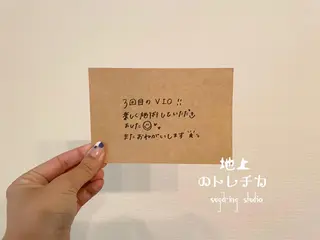 3回目のVIO!!
楽しく施術していただき
ました
またおねがいします
地上
のトレチカ
sugd by studio